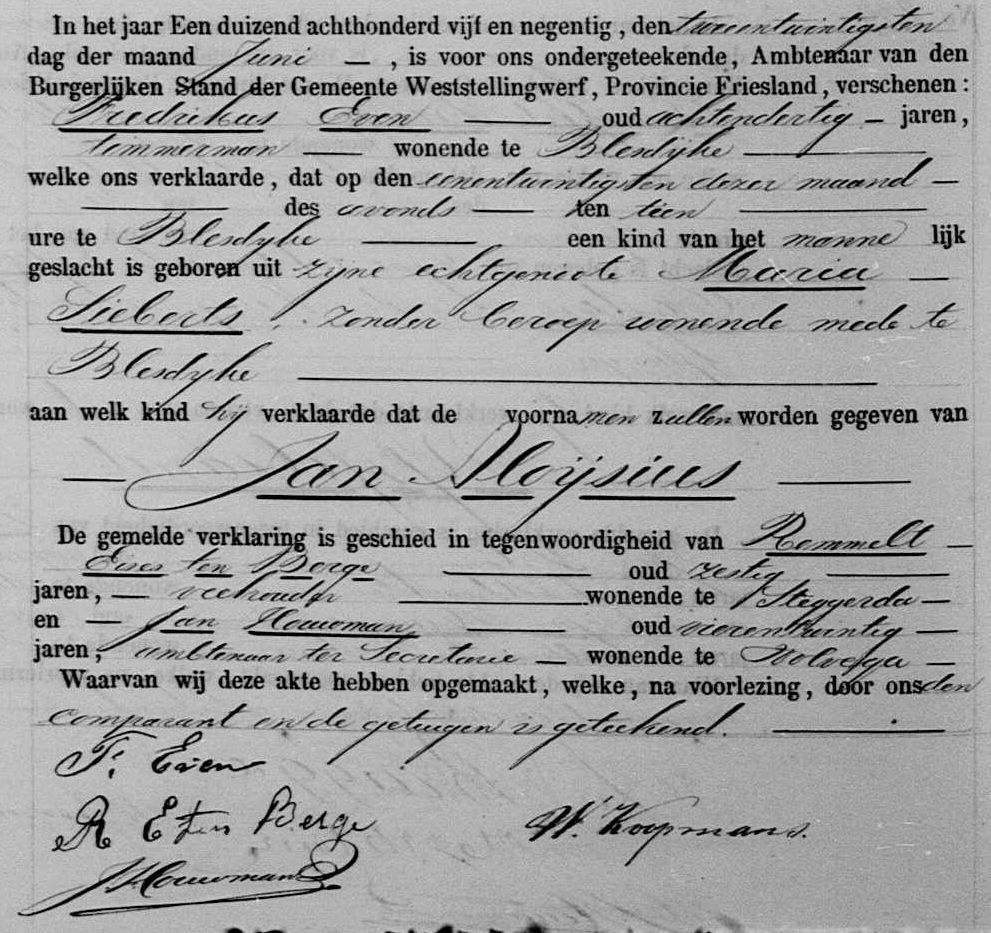 In het jaar Een duizend achthonderd vijf en negentig, den tweeentwintigsten
dag der maand Juni —, is voor ons ondergeteekende, Ambtenaar van den
Burgerlijken Stand der Gemeente Weststellingwerf, Provincie Friesland, verschenen:
Fredrikus Even — oud achtendertig — jaren,
timmerman — wonende te Blesdyke —
welke ons verklaarde, dat op den eenentwintigsten dezer maand —
— des avonds — ten tien —
ure te Blesdyke — een kind van het manne lijk
geslacht is geboren uit zyne echtgenoote Maria —
Sieberts, zonder beroep wonende mede te
Blesdyke —
aan welk kind hij verklaarde dat de voornamen zullen worden gegeven van
— Jan Aloÿsius —
De gemelde verklaring is geschied in tegenwoordigheid van Remmelt —
Eises ten Berge — oud zestig —
jaren, — veehouder — wonende te Steggerda —
en — Jan Houwman, — oud vierentwintig —
jaren, ambtenaar ter Secretarie — wonende te Wolvega —
Waarvan wij deze akte hebben opgemaakt, welke, na voorlezing, door ons den
comparant en de getuigen is geteekend. —
F. Even
R E ten Berge W. Koopmans.
J Houwman